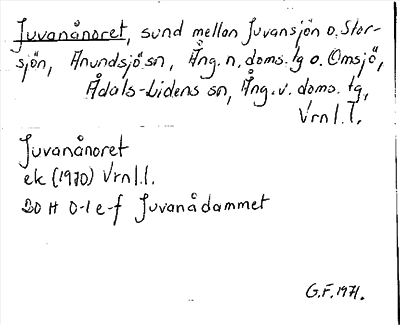 Juvanånoret, sund mellan Juvansjön o. Stor-
sjön, Anundsjö sn, Ång. n. doms. lg o. Omsjö,
Ådals-Lidens sn, Ång. v. doms. lg,
Vrnl. l.
Juvanånoret
ek (1970) Vrnl. l.
20 H 0-1 e-f Juvanådammet
G.F. 1971.